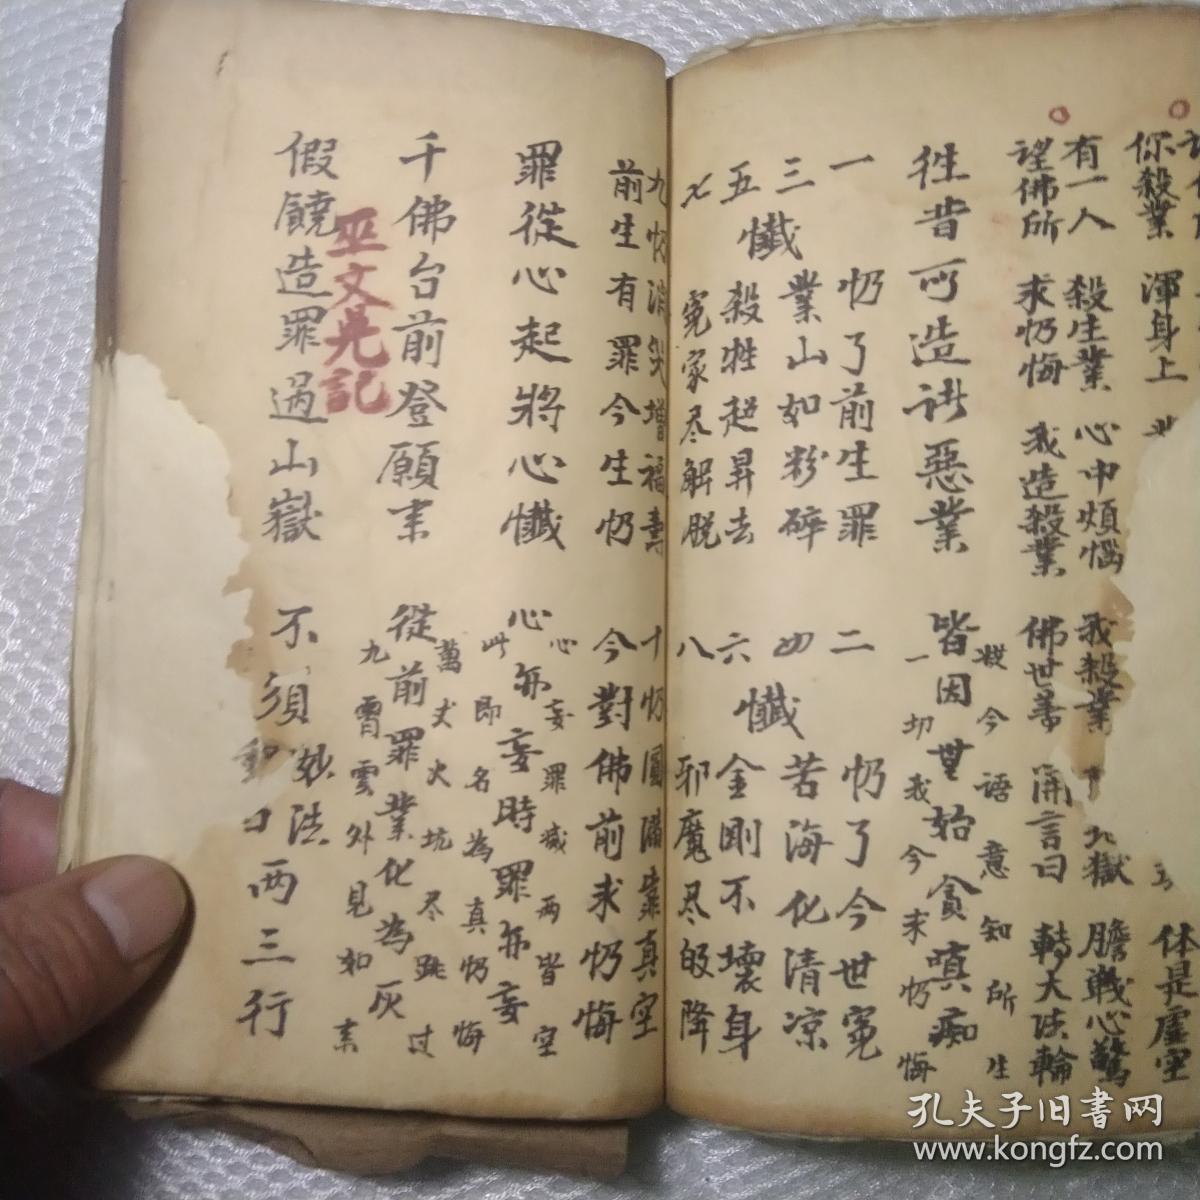 你殺業 渾身上
体是虛空
有一人 殺生業 心中煩惱 我殺業
地獄 膽戰心驚
望佛所 求忉悔 我造殺業 佛世善 開言曰 轉大法輪
徃昔所造諸惡業 皆因無始貪嗔痴
從今語意知所生
一切我今求忉悔
一 忉了前生罪 二 忉了今世冤
三 業山如粉碎 四 苦海化清凉
懺 懺
五 殺牲超昇去 六 金剛不壞身
七 冤家尽解脱 八 邪魔尽皈降
九忉消灾增福壽 十忉圓滿靠真空
前生有罪今生忉 今對佛前求忉悔
罪從心起將心懺 心亦妄時罪亦妄
心妄罪滅两皆空
此即名為真忉悔
千佛台前登願來 從前罪業化為灰
萬丈火坑尽跳过
九霄雲外見如來
巫文光記
假饒造罪過山嶽 不須妙法两三行